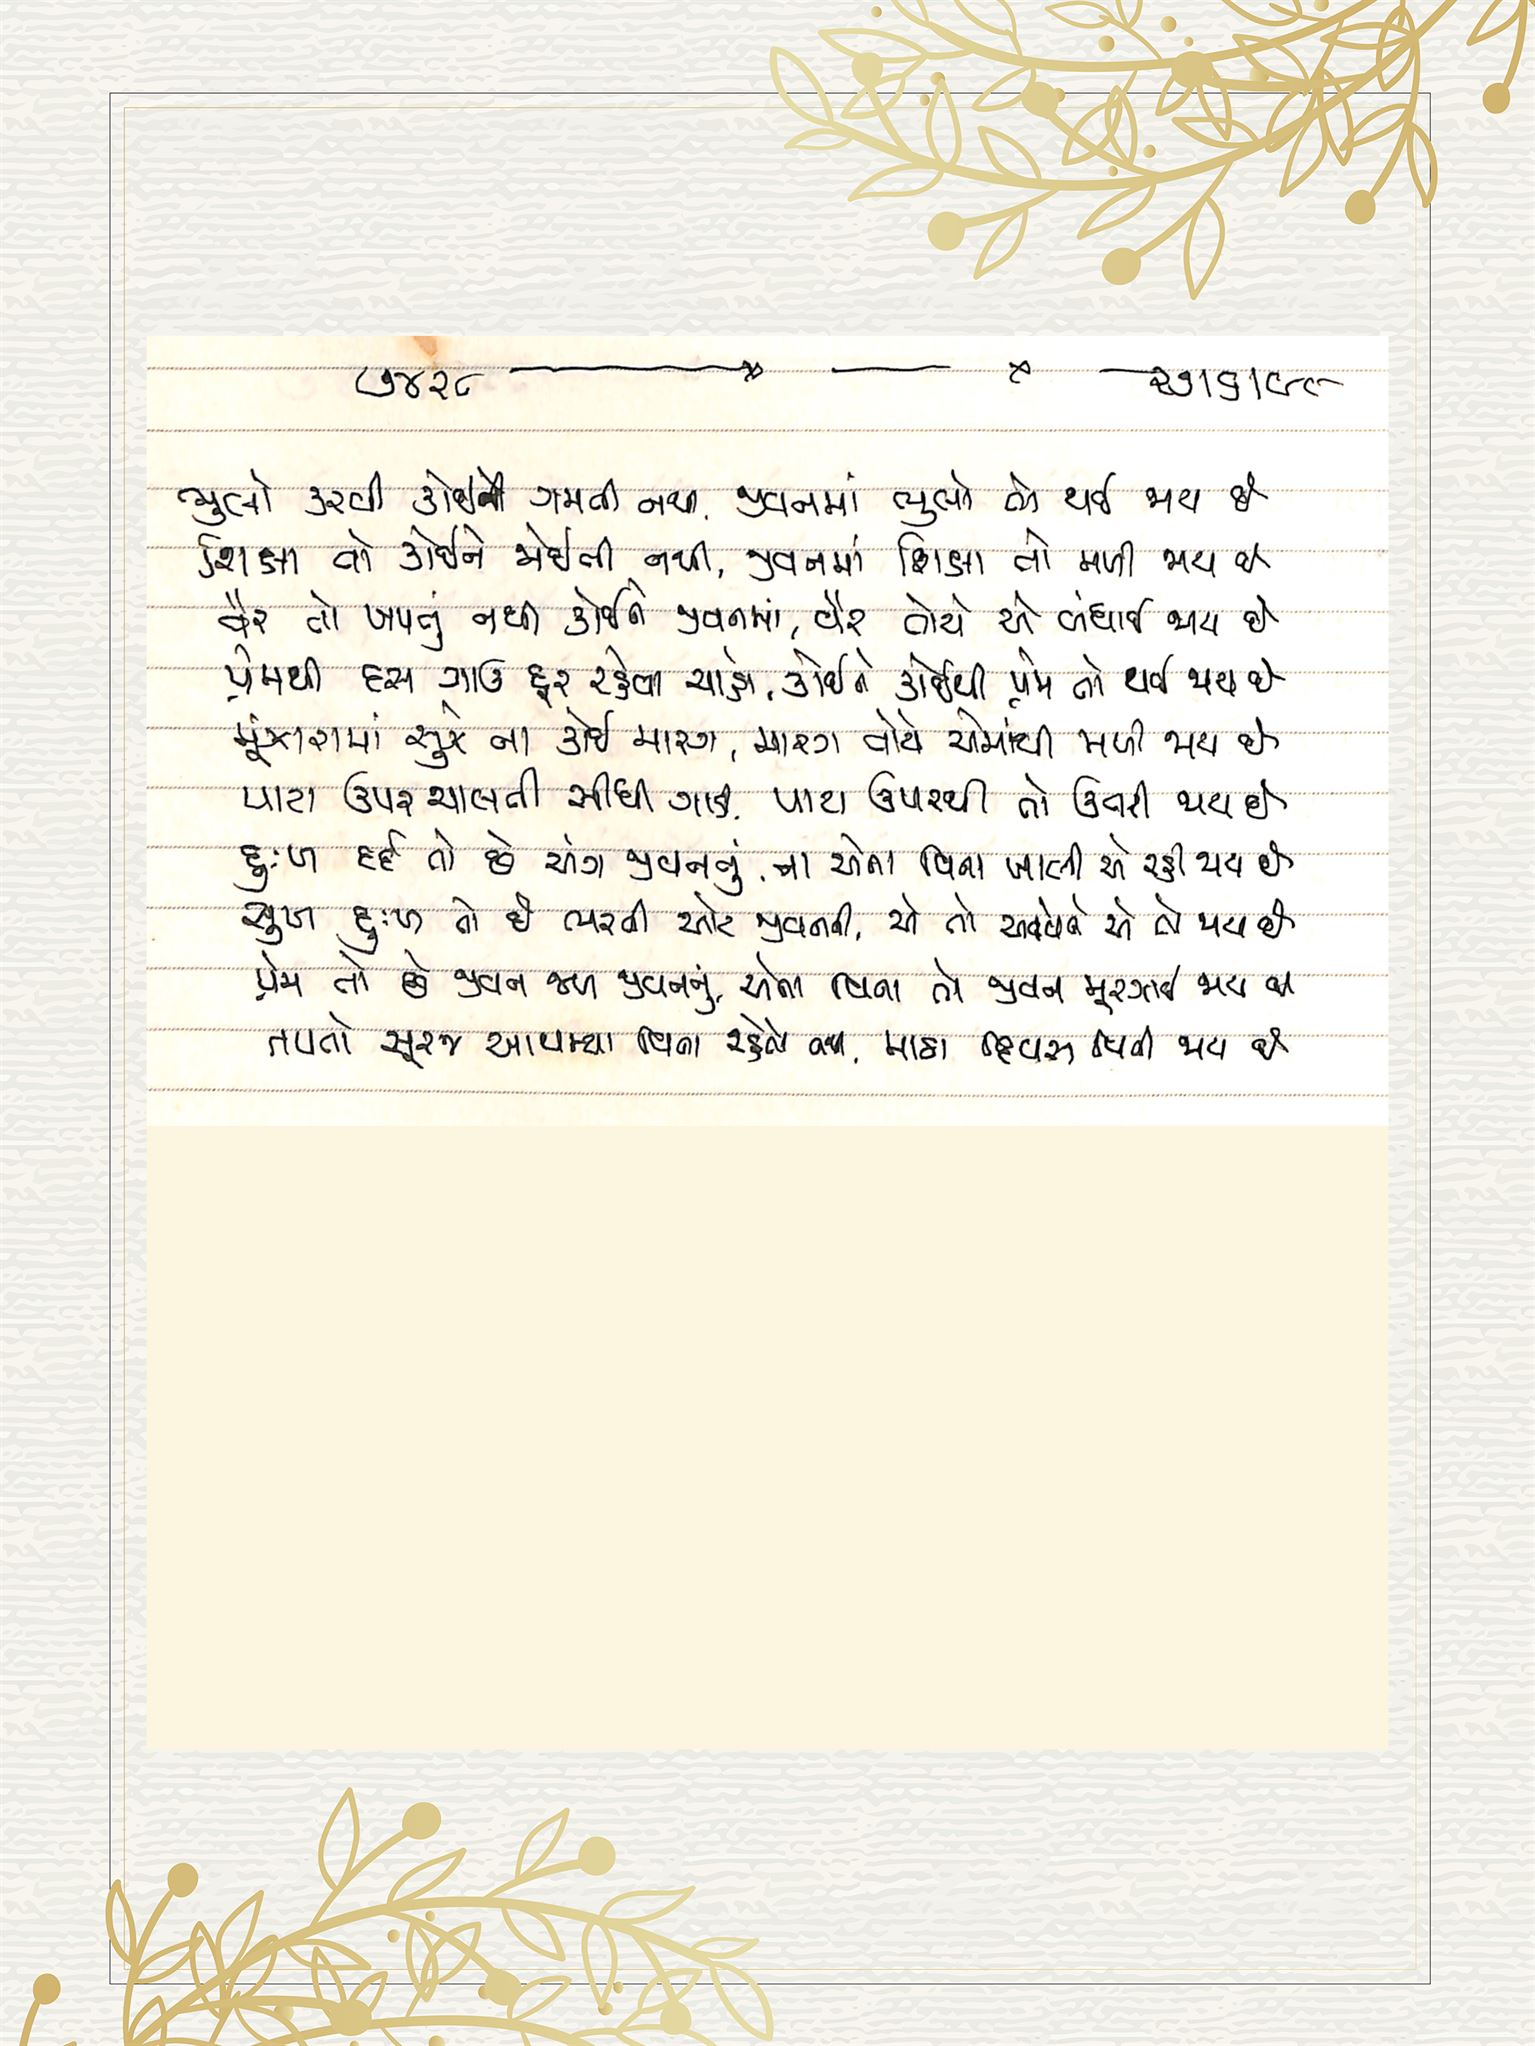 ૮૭૪૨૮ ૨૭।૬।૯૯
ભુલો કરવી કોઈને ગમતી નથી, જીવનમાં ભુલો તો થઈ જાય છે
શિક્ષા તો કોઈને જોઈતી નથી, જીવનમાં શિક્ષા તો મળી જાય છે
વૈર તો ખપતું નથી કોઈને જીવનમાં, વૈર તોયે એ બંધાઈ જાય છે
પ્રેમથી દસ ગાઉ દૂર રહેવા ચાહે, કોઈને કોઈથી પ્રેમ તો થઈ જાય છે
મૂંઝારામાં સુઝે ના કોઈ મારગ, મારગ તોયે એમાંથી મળી જાય છે
પાટા ઉપર ચાલતી સીધી ગાડી, પાટા ઉપરથી તો ઉતરી જાય છે
દુઃખ દર્દ તો છે અંગ જીવનનું, ના એના વિના ખાલી એ રહી જાય છે
સુખ દુઃખ તો છે ભરતી ઓટ જીવનની, એ તો આવે ને એ તો જાય છે
પ્રેમ તો છે જીવન જળ જીવનનું, એના વિના તો જીવન મૂરઝાઈ જાય છે
તપતો સૂરજ આથમ્યા વિના રહેતો નથી, માઠા દિવસ વિતી જાય છે